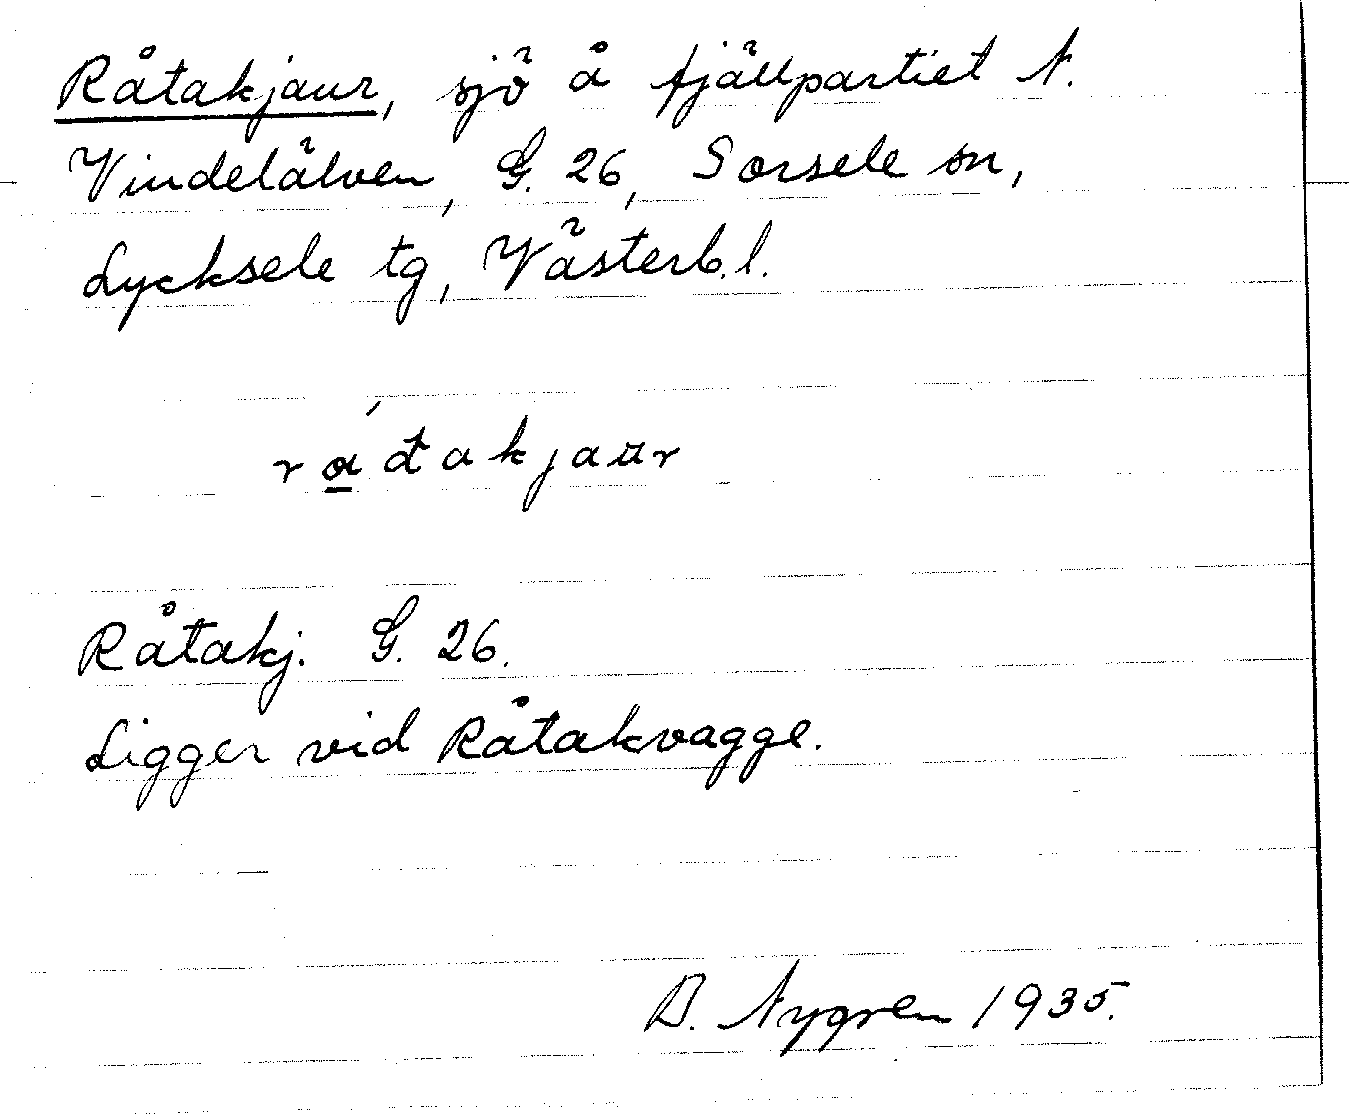 Råtakjaur, sjö å fjällpartiet N.
Vindelälven, G. 26, Sorsele sn,
Lycksele tg, Västerb. l.
rátakjaur
Råtakj. G. 26.
Ligger vid Råtakvagge.
B. Nygren 1935.